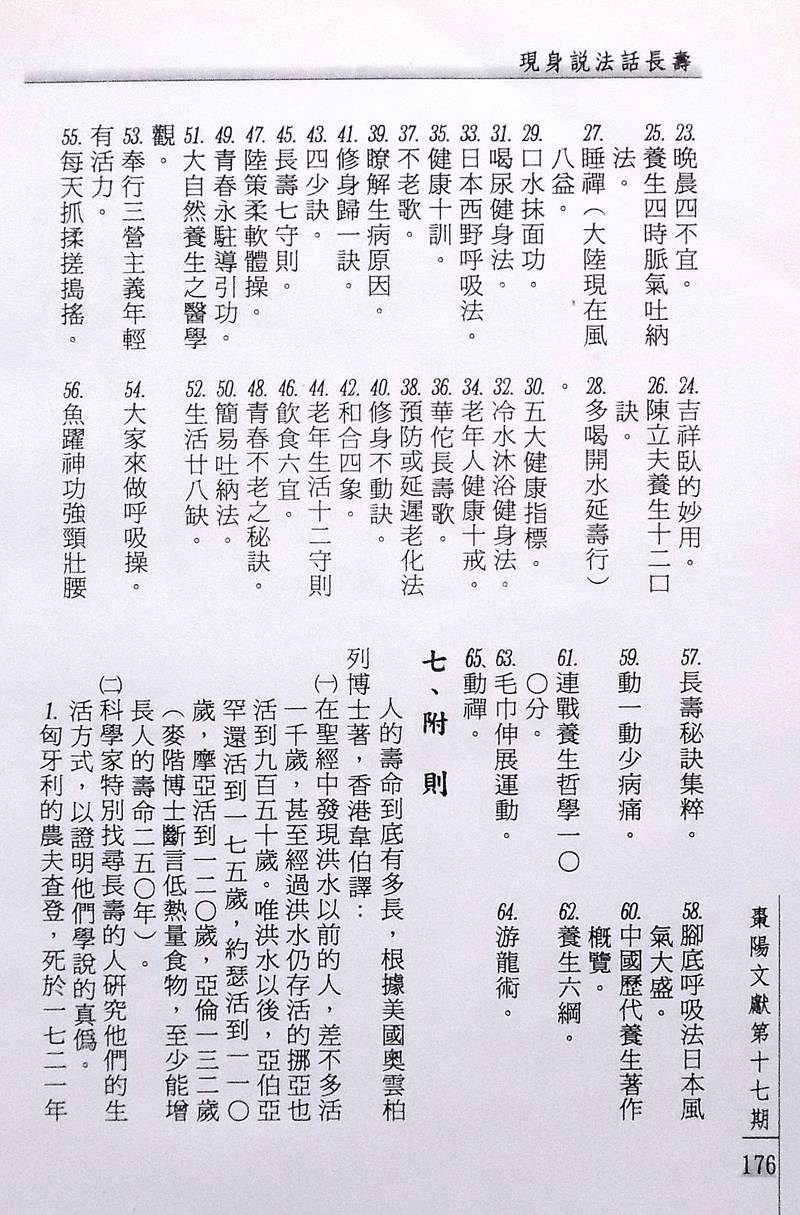 現身說法話長壽
23.晚晨四不宜。
24.吉祥臥的妙用。
25.養生四時脈氣吐納
法。
26.陳立夫養生十二口
訣。
27.睡禪（大陸現在風
八益。
28.多喝開水延壽行）
。
29.口水抹面功。
30.五大健康指標。
31.喝尿健身法。
32.冷水沐浴健身法。
33.日本西野呼吸法。
34.老年人健康十戒。
35.健康十訓。
36.華佗長壽歌。
37.不老歌。
38.預防或延遲老化法
39.瞭解生病原因。
40.修身不動訣。
41.修身歸一訣。
42.和合四象。
43.四少訣。
44.老年生活十二守則
45.長壽七守則。
46.飲食六宜。
47.陸策柔軟體操。
48.青春不老之秘訣。
49.青春永駐導引功。
50.簡易吐納法。
51.大自然養生之醫學
觀。
52.生活廿八缺。
53.奉行三營主義年輕
有活力。
54.大家來做呼吸操。
55.每天抓揉搓搗搖。
56.魚躍神功強頸壯腰
57.長壽秘訣集粹。
58.腳底呼吸法日本風
氣大盛。
59.動一動少病痛。
60.中國歷代養生著作
概覽。
61.連戰養生哲學一〇
〇分。
62.養生六綱。
63.毛巾伸展運動。
64.游龍術。
65.動禪。
七、附則
人的壽命到底有多長，根據美國奧雲柏
列博士著，香港韋伯譯：
㈠在聖經中發現洪水以前的人，差不多活
一千歲，甚至經過洪水仍存活的挪亞也
活到九百五十歲。唯洪水以後，亞伯亞
罕還活到一七五歲，約瑟活到一一〇
歲，摩亞活到一二〇歲，亞倫一三二歲
（麥階博士斷言低熱量食物，至少能增
長人的壽命二五〇年）。
㈡科學家特別找尋長壽的人研究他們的生
活方式，以證明他們學說的真僞。
1.匈牙利的農夫查登，死於一七二一年
棗陽文獻第十七期
176